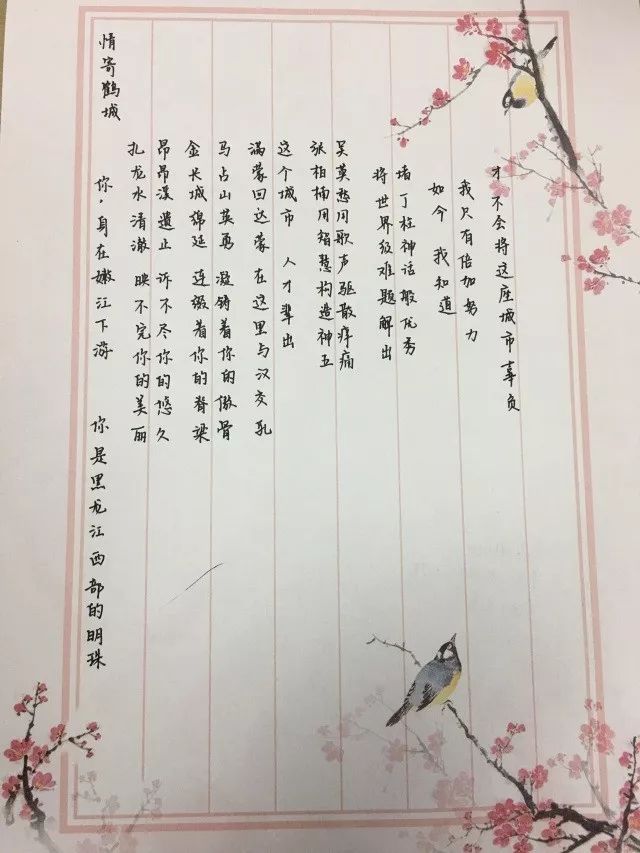 情寄鹤城
你，身在嫩江下游 你是黑龙江西部的明珠
扎龙水清澈 映不完你的美丽
昂昂溪遗止 诉不尽你的悠久
金长城绵延 连缀着你的脊梁
马占山英勇 铸着你的傲骨
满蒙回达蒙 在这里与汉交乳
这个城市 人才辈出
张柏楠用智慧构造神五
吴莫愁用歌声驱散痒痛
将世界级难题解出
堵丁柱神话般优秀
如今 我知道
我只有倍加努力
才不会将这座城市辜负